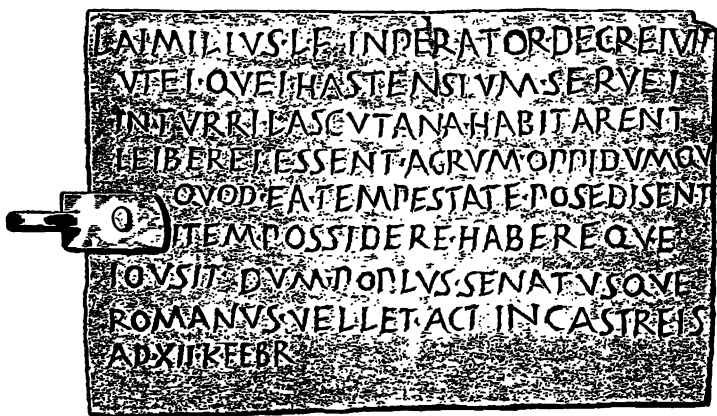 L·AIMILIVS·L·F· INPEIRATOR DECREIVIT
VTEI·QVEI·HASTENSIVM·SERVEI
IN TVRRI·LASCVTANA·HABITARENT
LEIBEREI·ESSENT·AGRVM·OPPIDVMQV
QVOD·EA·TEMPESTATE·POSEDISENT
ITEM POSSIDERE·HABEREQVE
IOVSIT DVM·POPLVS·SENATVSQVE
ROMANVS·VELLET·ACT IN CASTREIS
A D XII·K·FEBR